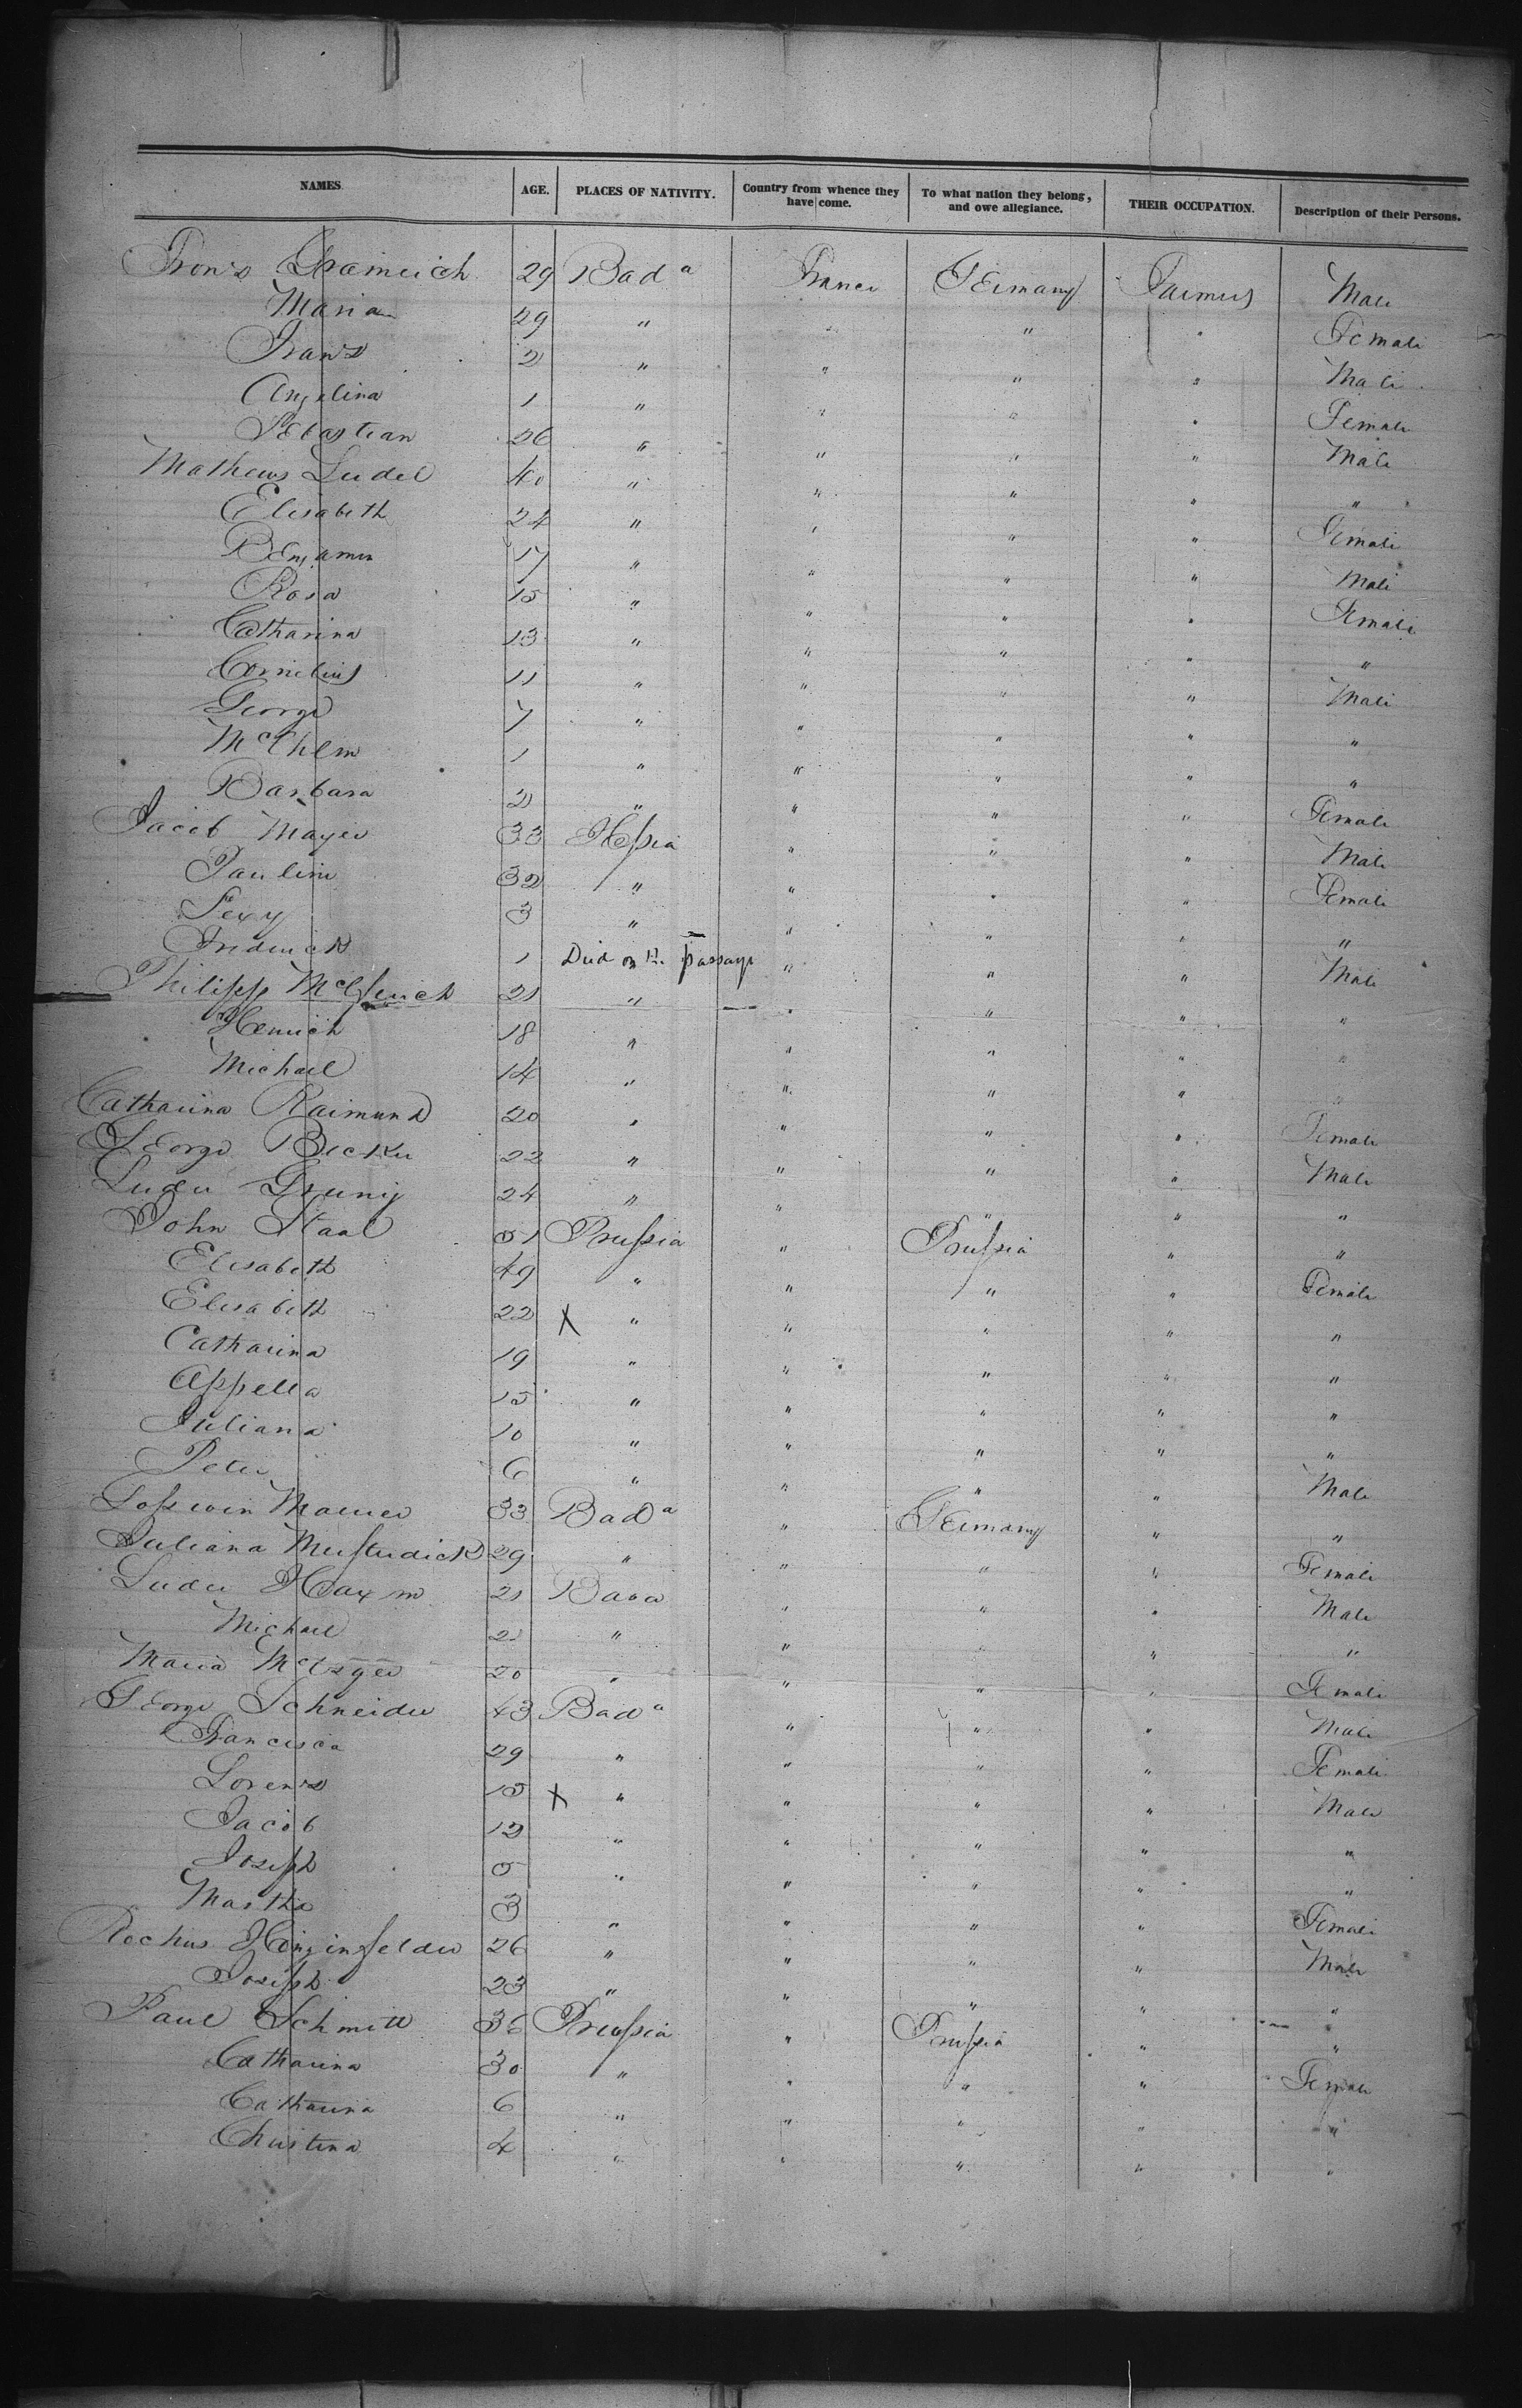 NAMES. AGE. PLACES OF NATIVITY. Country from whence they have come. To what nation they belong, and owe allegiance. THEIR OCCUPATION. Description of their Persons.
29 Bad a France Germany Farmers Male
Maria 29 " " " " Female
Frans 2 " " " " Male
Angelina 1 " " " " Female
Sebastian 26 " " " " Male
Matheus Ludel 40 " " " " "
Elisabeth 24 " " " " Female
Benjamin 17 " " " " Male
Rosa 15 " " " " Female
Catharina 13 " " " " "
Cornelius 11 " " " " Male
George 7 " " " " "
1 " " " " "
Barbara 2 " " " " Female
Jacob Mayer 33 Hessia " " " Male
Pauline 32 " " " " Female
3 " " " " "
Frederick 1 Died on the passage " " " Male
Philipp 21 " " " " "
Henrich 18 " " " " "
Michael 14 " " " " "
Catharina Raimund 20 " " " " Female
George Becker 22 " " " " Male
24 " " " " "
John Staal 51 Prussia " Prussia " "
Elisabeth 49 " " " " Female
Elisabeth 22 X " " " " "
Catharina 19 " " " " "
Appella 15 " " " " "
Juliana 10 " " " " "
Peter 6 " " " " Male
Maurer 33 Bad a " Germany " "
Juliana 29 " " " " Female
21 Bava " " " Male
Michael 21 " " " " "
Maria Metzger 20 " " " " Female
George Schneider 43 Bad a " " " Male
Francisca 29 " " " " Female
Lorens 15 X " " " " Male
Jacob 12 " " " " "
Joseph 5 " " " " "
Martha 3 " " " " Female
Rochus 26 " " " " Male
Joseph 23 " " " " "
Paul Schmitt 36 Prussia " Prussia " "
Catharina 30 " " " " Female
Catharina 6 " " " " "
Christina 4 " " " " "